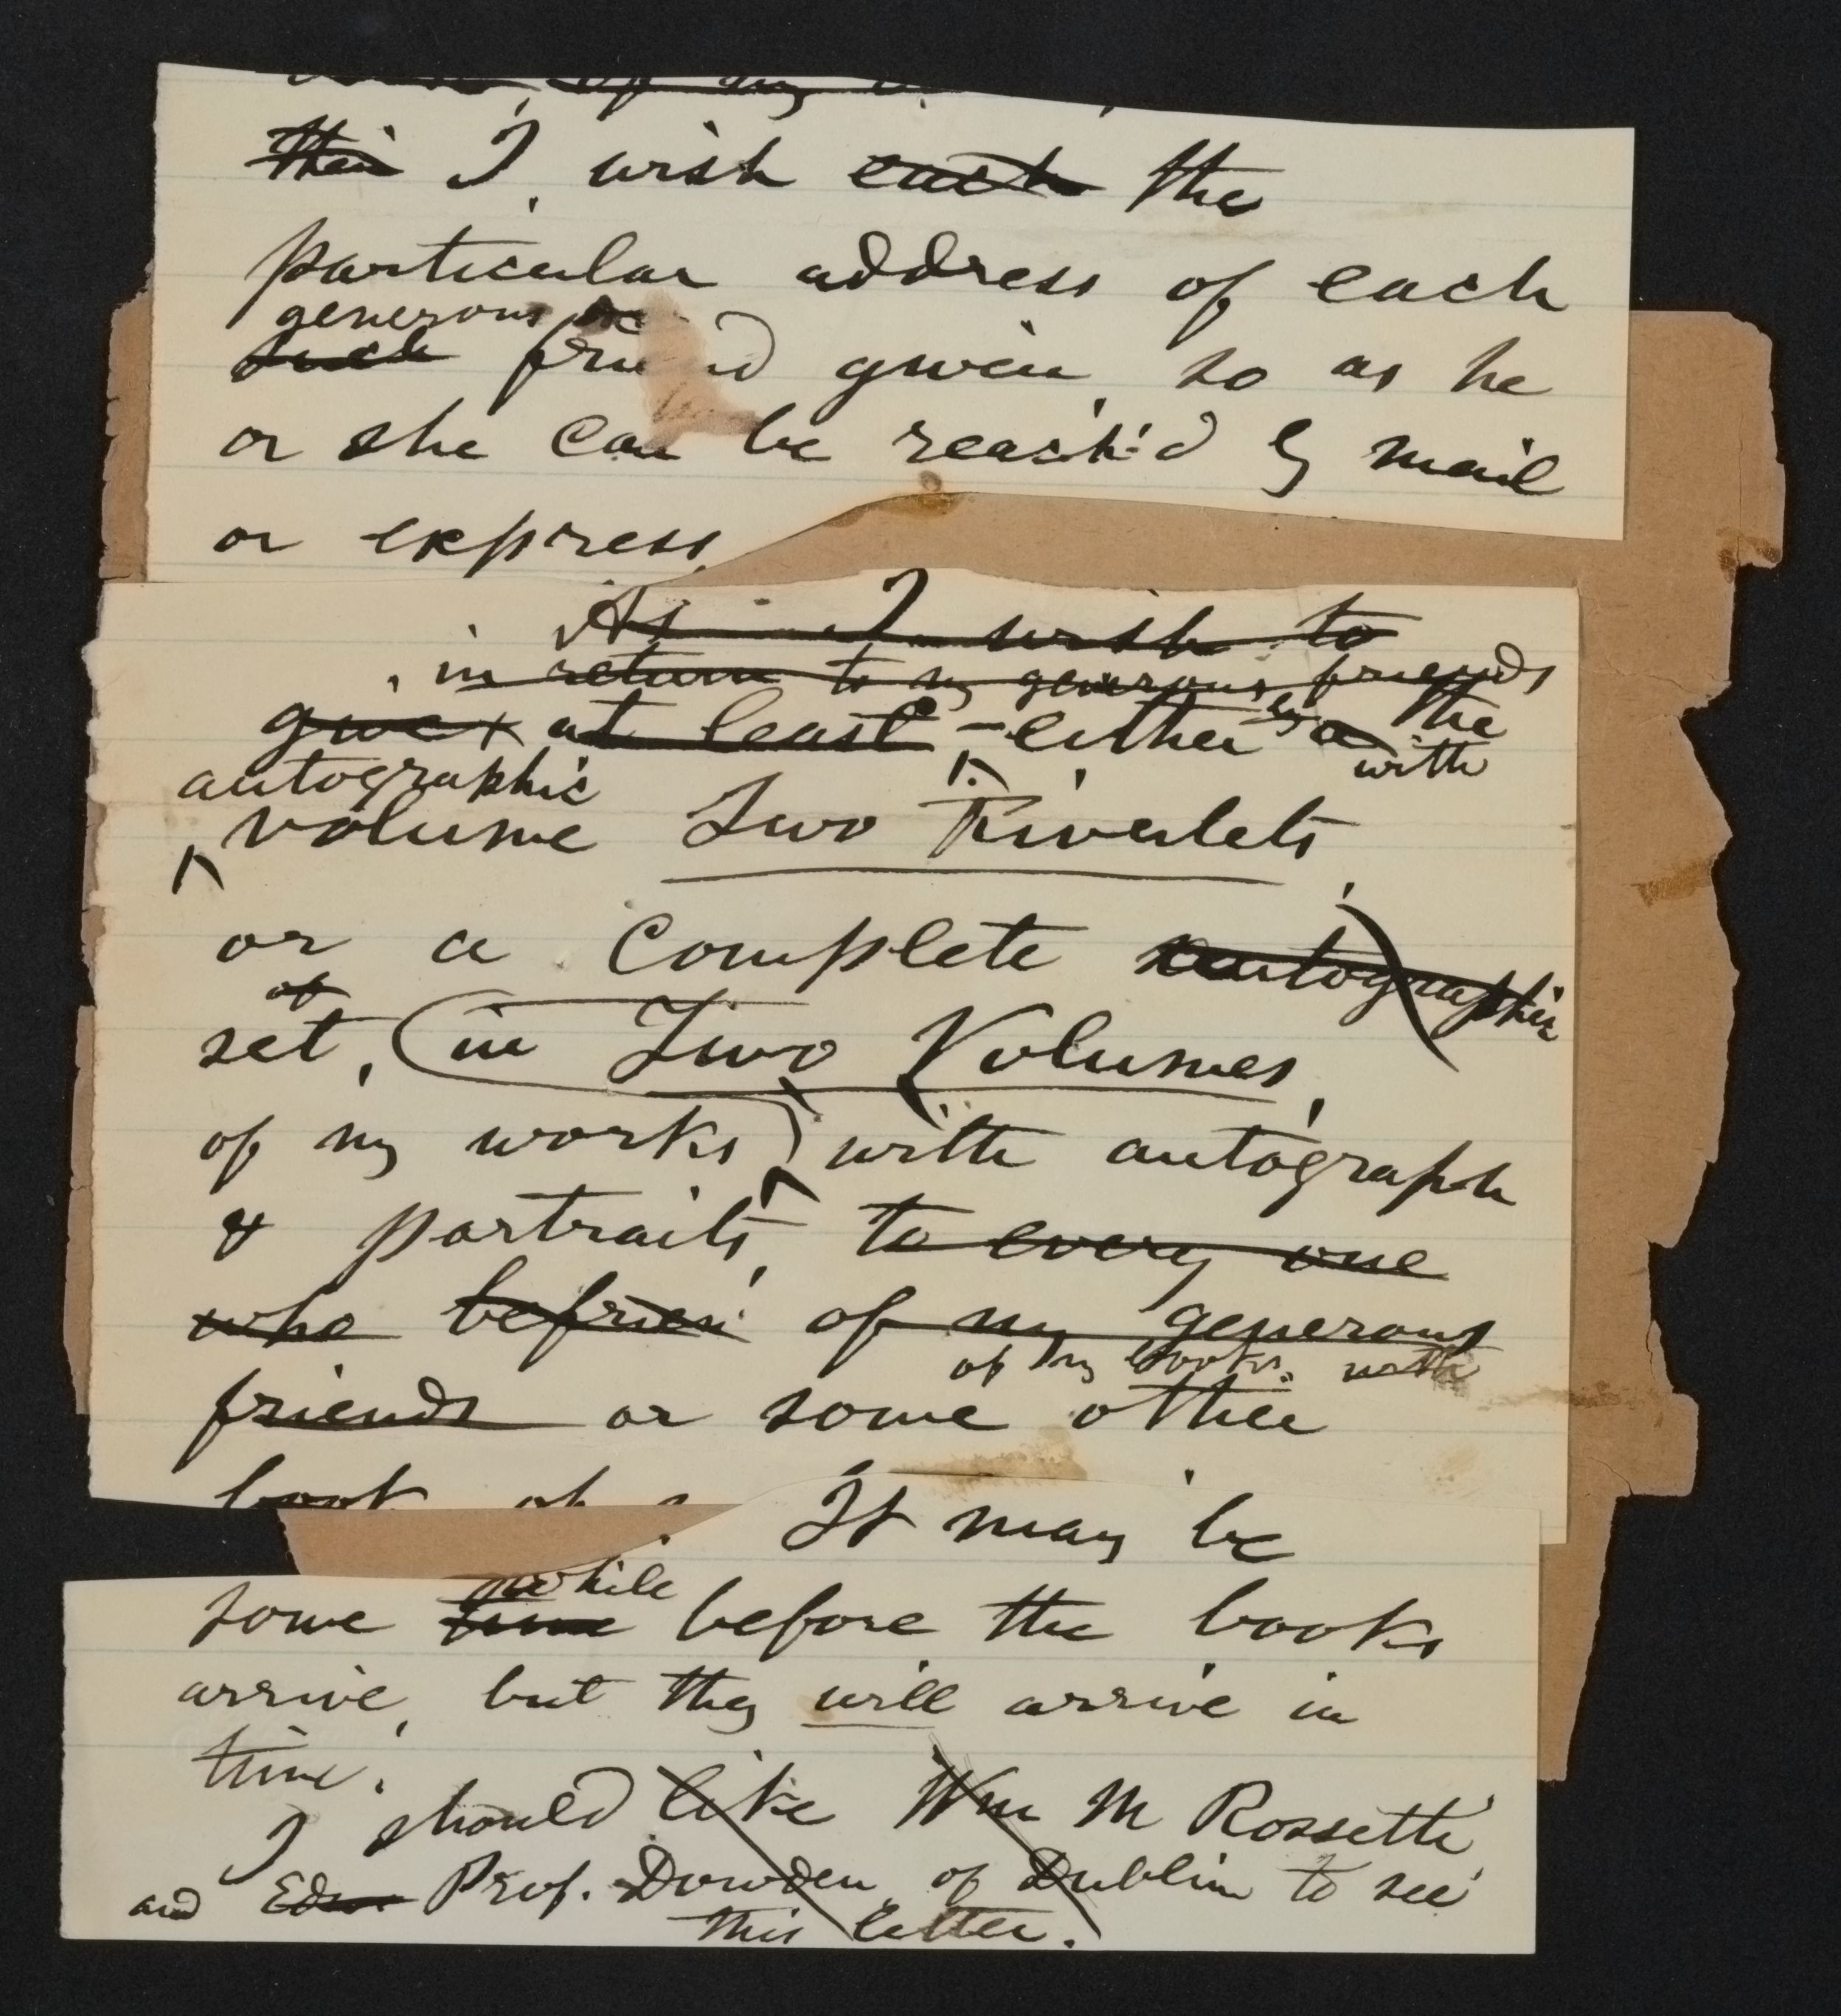 their I wish each the
particular address of each
generous
such friend given, so as he
or she can be reach'd by mail
or express.
As I wish to
in return to my generous friends
give at least – either by a the
with
autographic
volume Two Rivulets,
or a complete autographic
of
set, (in Two Volumes,
of my works) with autograph
& portraits, to every one
who befrien of my generous
of my books, with
friends or some other
book of
It may be
awhile
some time before the books
arrive, but they will arrive in
time.
I should like Wm M Rossetti,
and Edw Prof. Dowden, of Dublin to see
this letter.